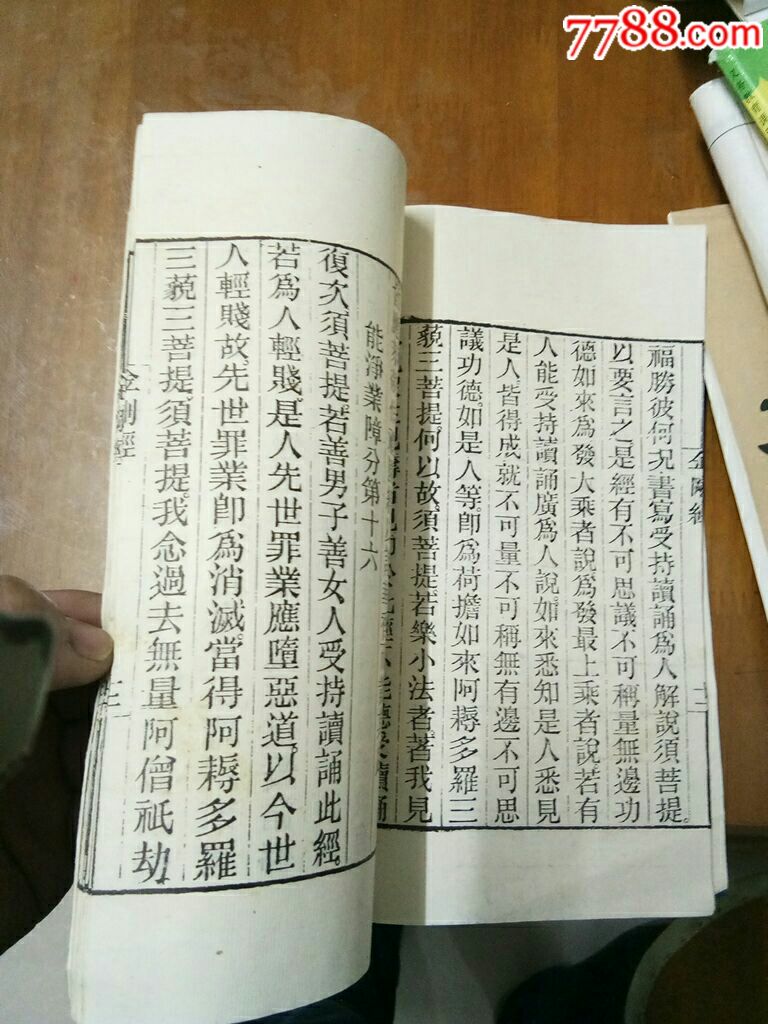 7788.com
金剛經
福勝彼何況書寫受持讀誦爲人解說須菩提。
以要言之。是經有不可思議不可稱量無邊功
德如來爲發大乘者說爲發最上乘者說若有
人能受持讀誦廣爲人說。如來悉知是人悉見
是人皆得成就不可量不可稱無有邊不可思
議功德。如是人等。卽爲荷擔如來阿耨多羅三
藐三菩提。何以故。須菩提。若樂小法者。著我見
能淨業障分第十六
復次須菩提。若善男子善女人受持讀誦此經。
若爲人輕賤。是人先世罪業應墮惡道。以今世
人輕賤故。先世罪業卽爲消滅。當得阿耨多羅
三藐三菩提。須菩提。我念過去無量阿僧祇劫
金剛經